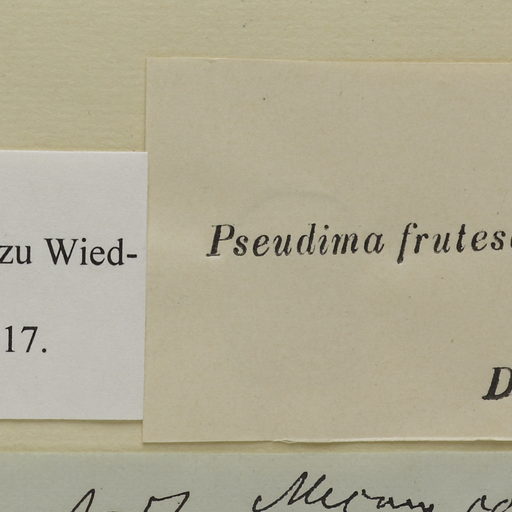 zu Wied-
17.
Pseudima frutesc
D